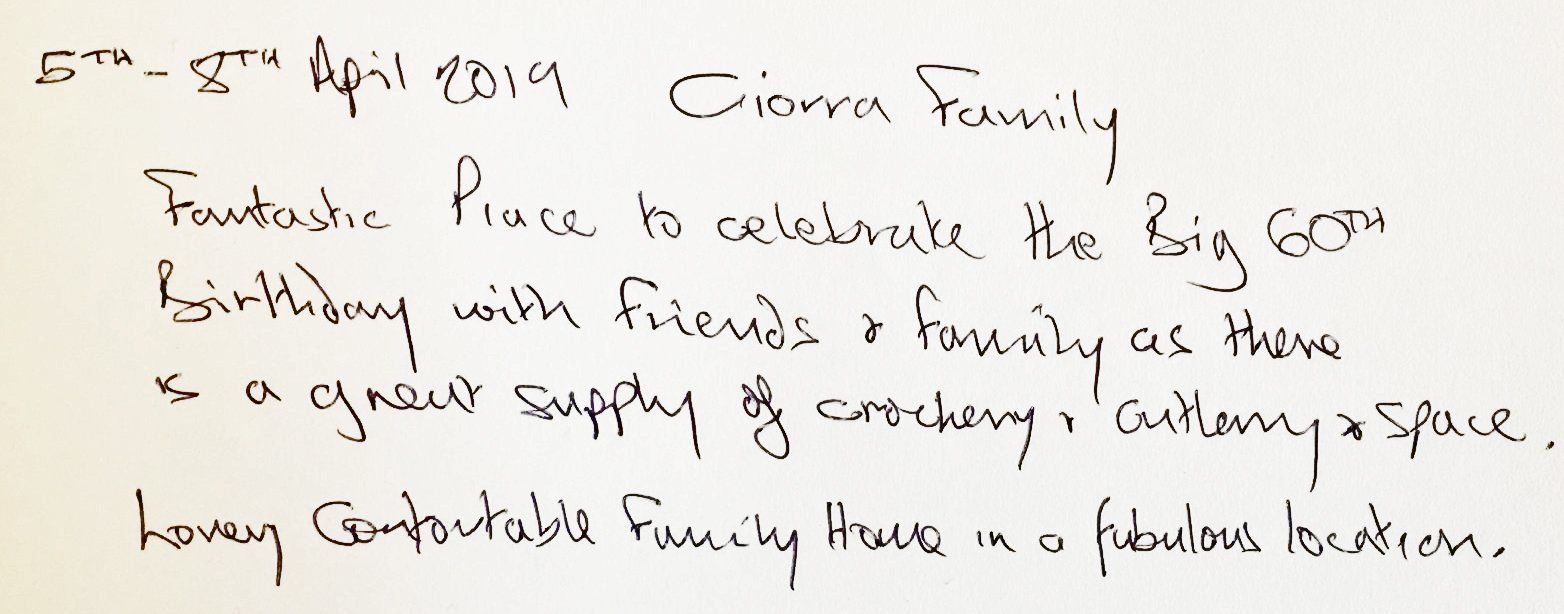 5TH - 8TH April 2019 Ciorra Family
Fantastic Place to celebrate the Big 60TH
Birthday with friends & family as there
is a great supply of crockery & cutlery & space.
Lovely Comfortable Family Home in a fabulous location.